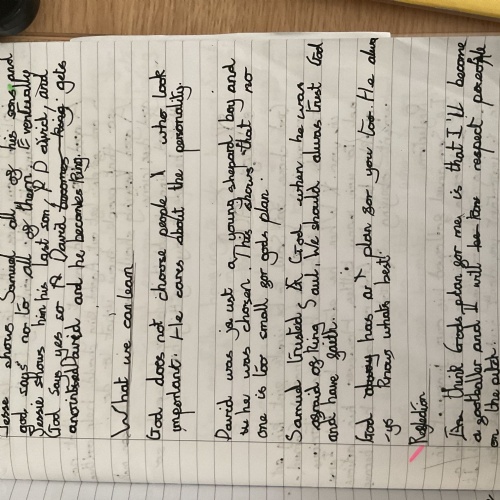 Jesse shows Samuel all of his sons and
god says no to all of them. Eventually
Jessie shows him his last son, D david, and
God says yes so David becomes king gets
anointised david and he becomes king.
What we can learn
God does not choose people who look
important. He cares about the personality.
David was just a young shepard boy and
he was chosen. This shows that no
one is too small for gods plan.
Samuel trusted God when he was
afraid of king Saul. We should always trust God
and have faith.
God has a plan for you too. He alwa
-ys knows whats best.
Reflection
I think Gods plan for me is that I'll become
a footballer and I will be respect people
on the pitch.